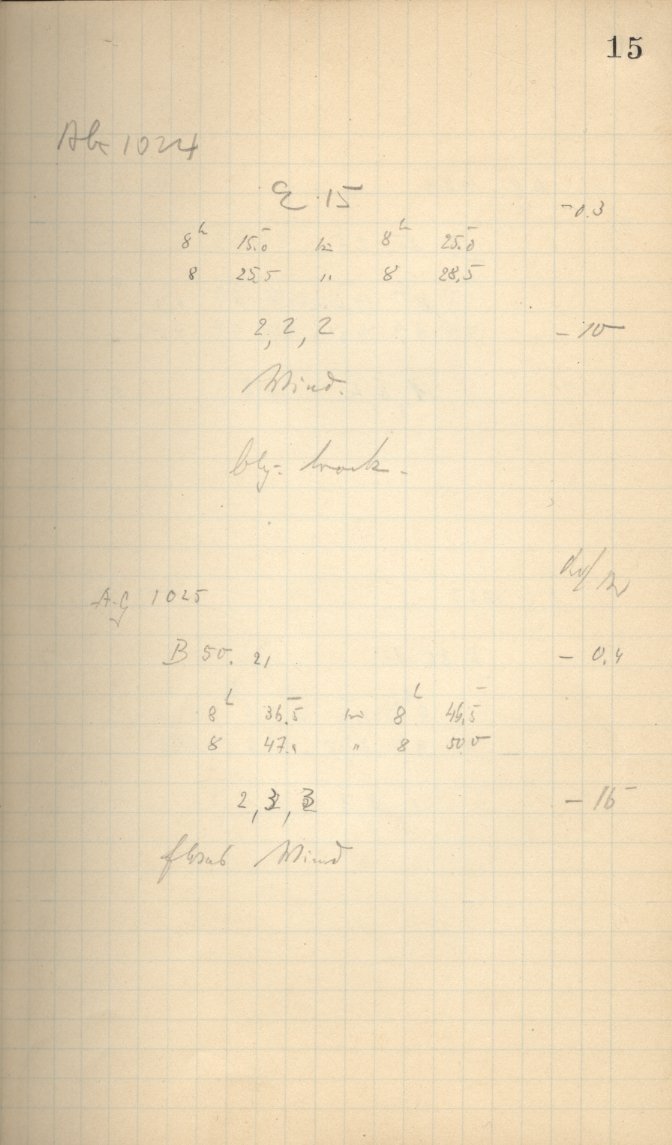 15
1024
E 15 -0.3
8h 15.0 bis 8h 25.0
8 25.5 " 8 28,5
2, 2, 2 -10
Wind.
A.G 1025
B 50. 21 - 0,4
8h 36.5 bis 8h 46,5
8 47.0 " 8 50 0
2, 3, 3 - 16
etwas Wind